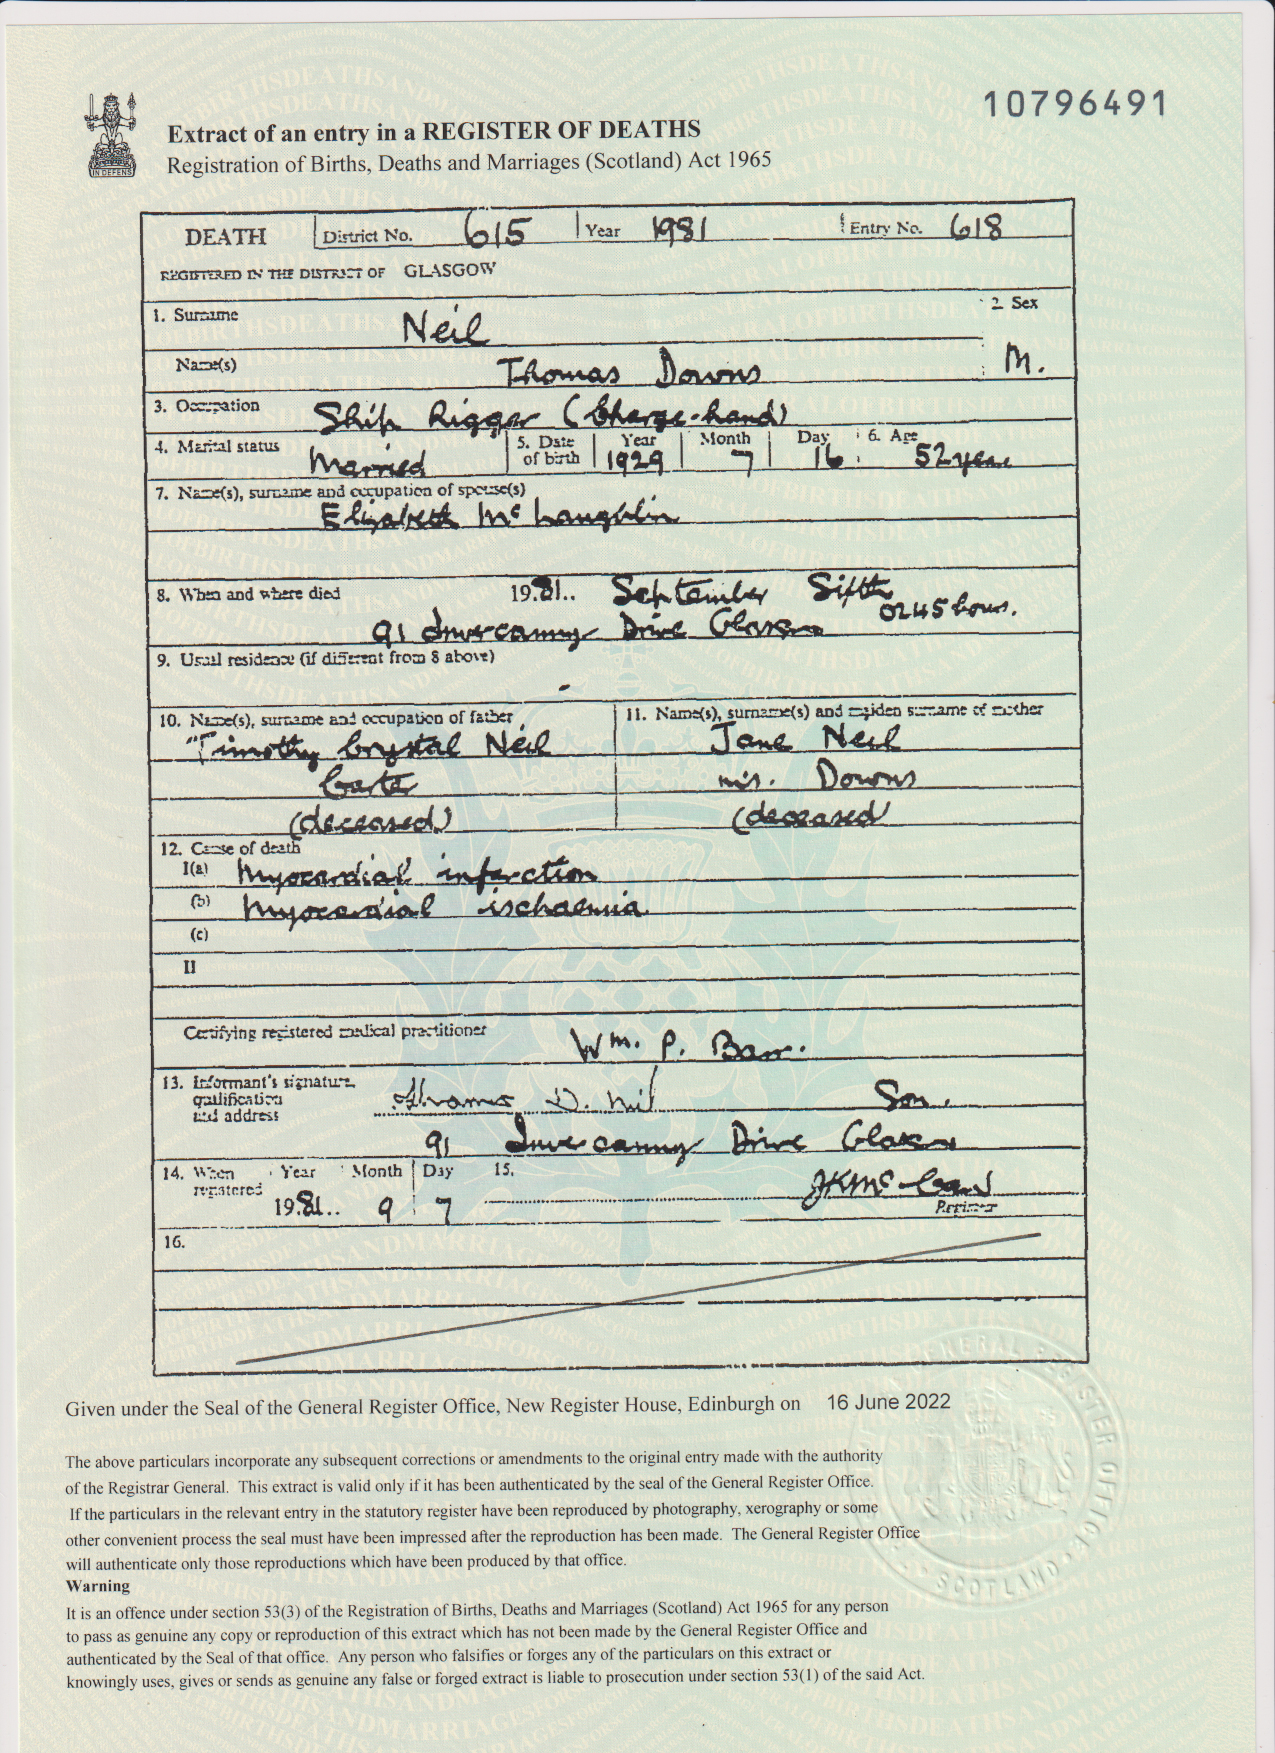 10796491
IN DEFENS
Extract of an entry in a REGISTER OF DEATHS
Registration of Births, Deaths and Marriages (Scotland) Act 1965
DEATH District No. 615 Year 1981 Entry No. 618
REGISTERED IN THE DISTRICT OF GLASGOW
1. Surname Neil 2. Sex
Name(s) Thomas Downs M.
3. Occupation Ship Rigger (Charge-hand)
4. Marital status Married 5. Date of birth Year 1929 Month 7 Day 16 6. Age 52 years
7. Name(s), surname and occupation of spouse(s)
Elizabeth McLaughlin
8. When and where died 1981.. September Fifth 0245 hours.
91 Invercanny Drive Glasgow
9. Usual residence (if different from 8 above)
-
10. Name(s), surname and occupation of father 11. Name(s), surname(s) and maiden surname of mother
Timothy Crystal Neil Jane Neil
Carter m/s. Downs
(deceased) (deceased)
12. Cause of death
I(a) Myocardial infarction
(b) Myocardial ischaemia
(c)
II
Certifying registered medical practitioner Wm. P. Barr.
13. Informant's signature, qualification and address Thomas D. Neil Son.
91 Invercanny Drive Glasgow
14. When registered Year 1981.. Month 9 Day 7 15.
Registrar
16.
Given under the Seal of the General Register Office, New Register House, Edinburgh on 16 June 2022
The above particulars incorporate any subsequent corrections or amendments to the original entry made with the authority
of the Registrar General. This extract is valid only if it has been authenticated by the seal of the General Register Office.
If the particulars in the relevant entry in the statutory register have been reproduced by photography, xerography or some
other convenient process the seal must have been impressed after the reproduction has been made. The General Register Office
will authenticate only those reproductions which have been produced by that office.
Warning
It is an offence under section 53(3) of the Registration of Births, Deaths and Marriages (Scotland) Act 1965 for any person
to pass as genuine any copy or reproduction of this extract which has not been made by the General Register Office and
authenticated by the Seal of that office. Any person who falsifies or forges any of the particulars on this extract or
knowingly uses, gives or sends as genuine any false or forged extract is liable to prosecution under section 53(1) of the said Act.
GENERAL REGISTER OFFICE • SCOTLAND •